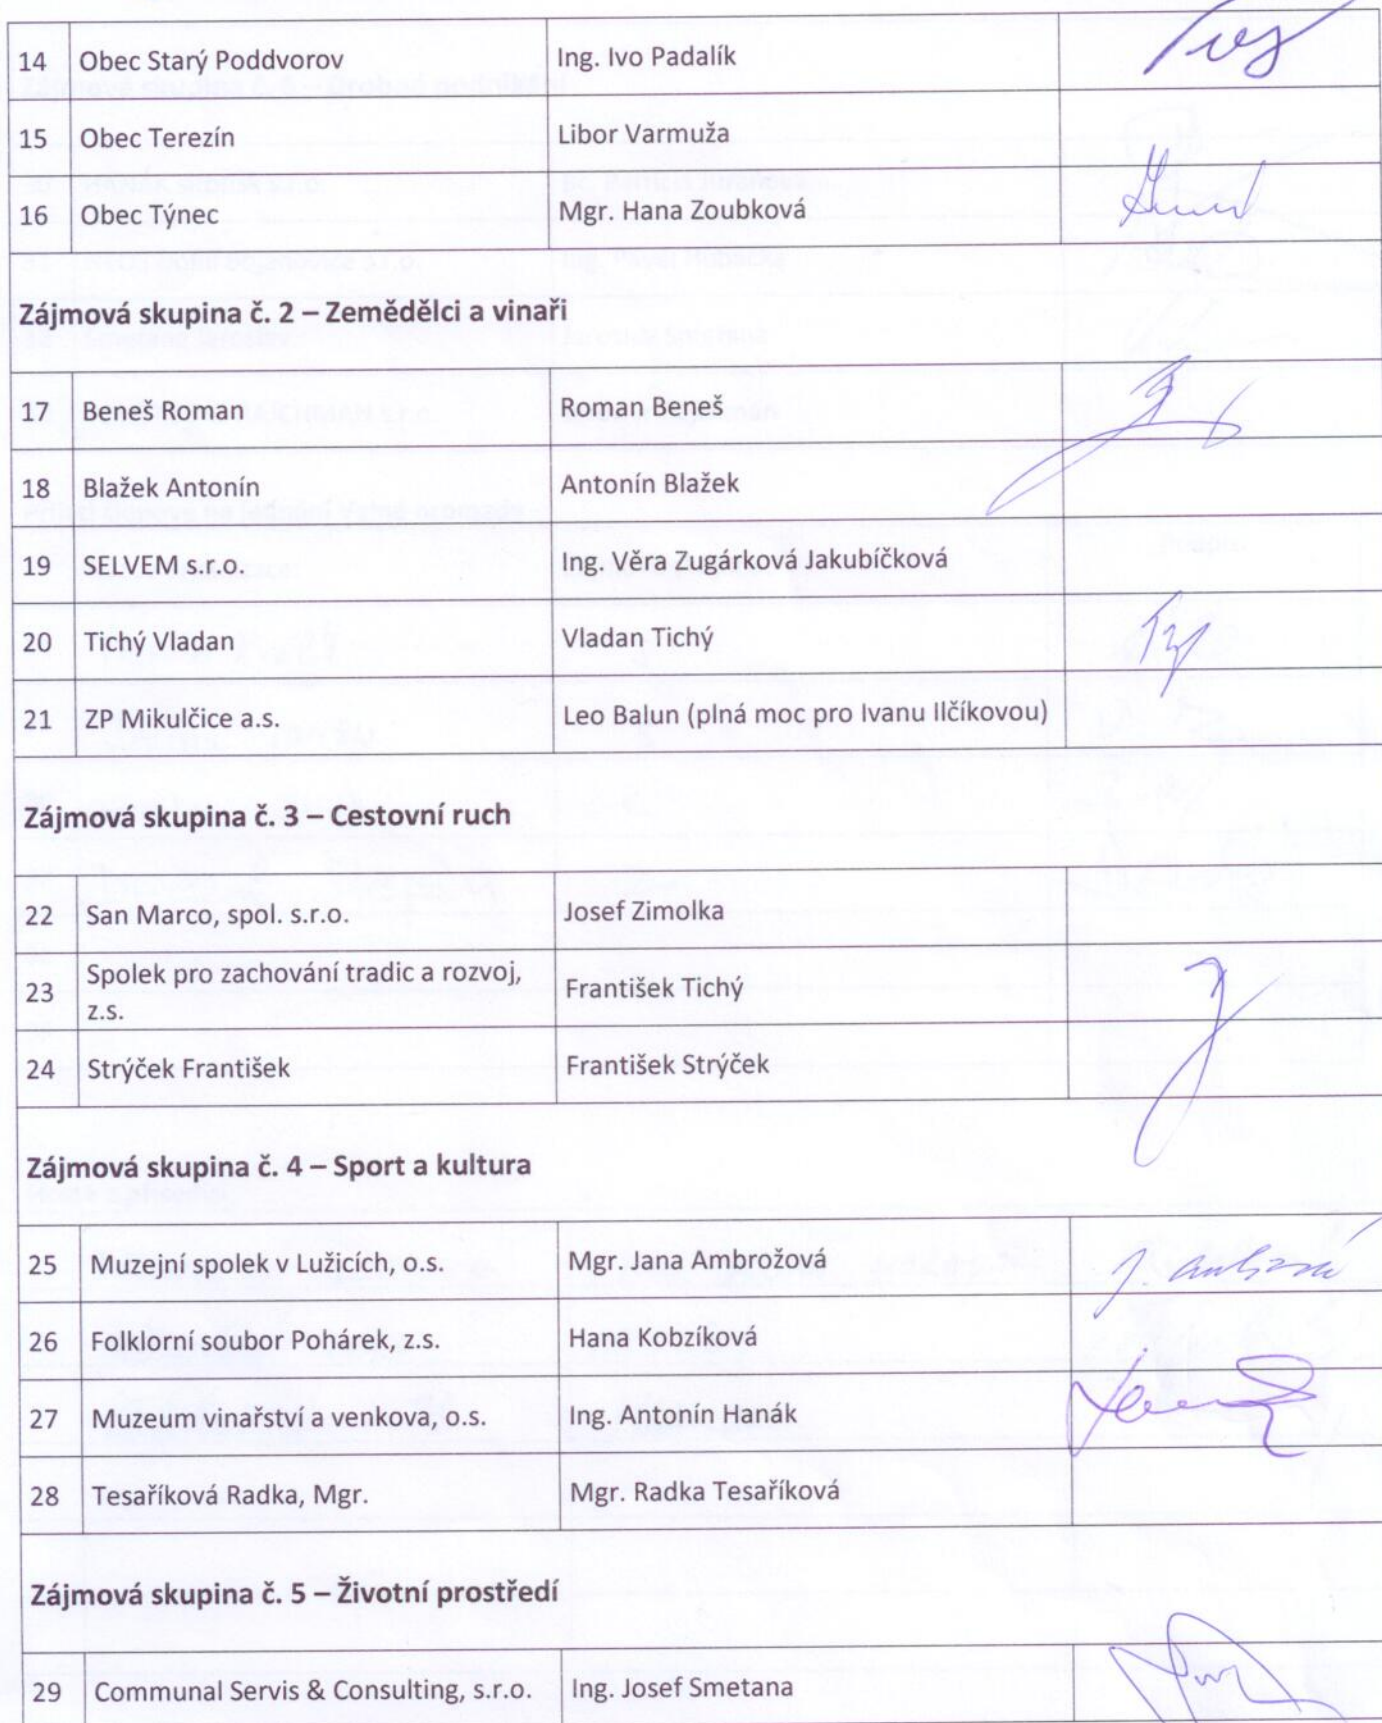 14 Obec Starý Poddvorov Ing. Ivo Padalík
15 Obec Terezín Libor Varmuža
16 Obec Týnec Mgr. Hana Zoubková
Zájmová skupina č. 2 – Zemědělci a vinaři
17 Beneš Roman Roman Beneš
18 Blažek Antonín Antonín Blažek
19 SELVEM s.r.o. Ing. Věra Zugárková Jakubíčková
20 Tichý Vladan Vladan Tichý
21 ZP Mikulčice a.s. Leo Balun (plná moc pro Ivanu Ilčíkovou)
Zájmová skupina č. 3 – Cestovní ruch
22 San Marco, spol. s.r.o. Josef Zimolka
23 Spolek pro zachování tradic a rozvoj, z.s. František Tichý
24 Strýček František František Strýček
Zájmová skupina č. 4 – Sport a kultura
25 Muzejní spolek v Lužicích, o.s. Mgr. Jana Ambrožová
26 Folklorní soubor Pohárek, z.s. Hana Kobzíková
27 Muzeum vinařství a venkova, o.s. Ing. Antonín Hanák
28 Tesaříková Radka, Mgr. Mgr. Radka Tesaříková
Zájmová skupina č. 5 – Životní prostředí
29 Communal Servis & Consulting, s.r.o. Ing. Josef Smetana